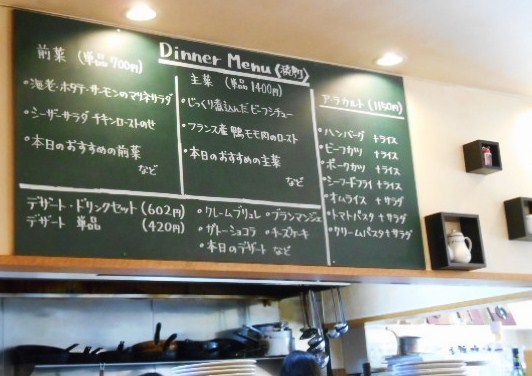 Dinner Menu (税別)
前菜 (単品900円)
・海老・ホタテ・サーモンのマリネサラダ
・シーザーサラダ チキンローストのせ
・本日のおすすめの前菜
など
主菜 (単品1400円)
・じっくり煮込んだビーフシチュー
・フランス産 鴨モモ肉のロースト
・本日のおすすめの主菜
など
アラカルト (1150円)
・ハンバーグ +ライス
・ビーフカツ +ライス
・ポークカツ +ライス
・シーフードフライ +ライス
・オムライス +サラダ
・トマトパスタ +サラダ
・クリームパスタ +サラダ
デザート・ドリンクセット (602円)
デザート 単品 (420円)
・クレームブリュレ ・ブランマンジェ
・ガトーショコラ ・チーズケーキ
・本日のデザート など